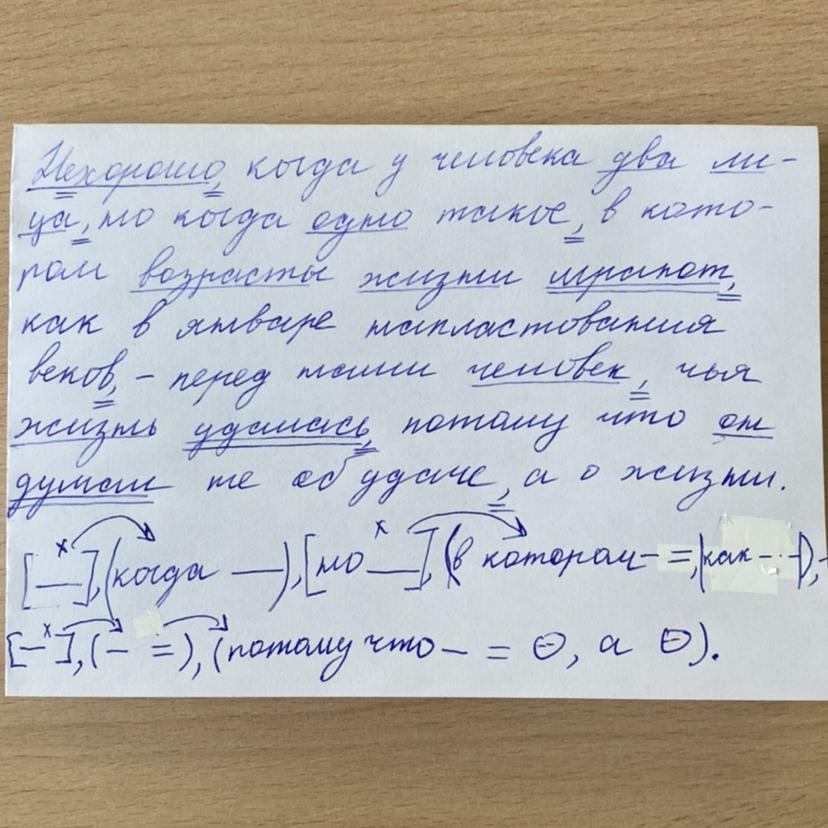 Нехорошо, когда у человека два ли-
ца, но когда одно такое, в кото-
ром возрасты жизни хранят,
как в январе напластования
веков, - перед нами человек, чья
жизнь удалась, потому что он
думал не об удаче, а о жизни.
[x —], (когда —), [но x —], (в котором — =, |как — · -|), -
[— x], (— =), (потому что — = ⊖, а ⊖).